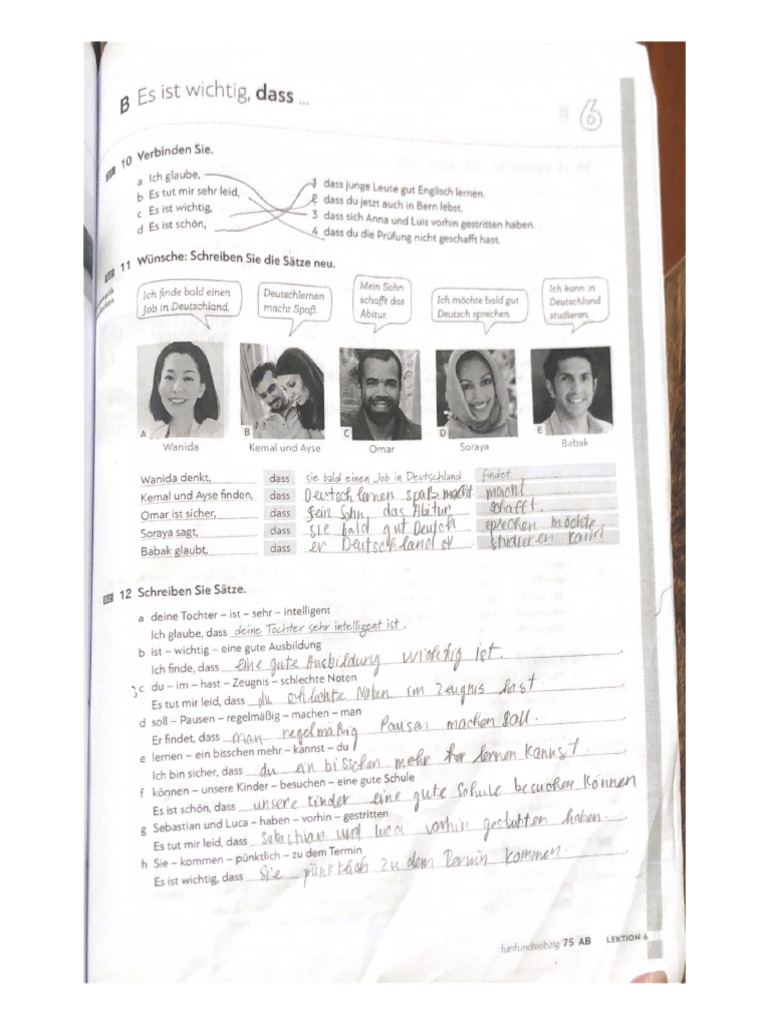 B Es ist wichtig, dass ...
6
10 Verbinden Sie.
a Ich glaube,
b Es tut mir sehr leid,
c Es ist wichtig,
d Es ist schön,
1 dass junge Leute gut Englisch lernen.
2 dass du jetzt auch in Bern lebst.
3 dass sich Anna und Luis vorhin gestritten haben.
4 dass du die Prüfung nicht geschafft hast.
11 Wünsche: Schreiben Sie die Sätze neu.
Ich finde bald einen
Job in Deutschland.
Deutschlernen
macht Spaß.
Mein Sohn
schafft das
Abitur.
Ich möchte bald gut
Deutsch sprechen.
Ich kann in
Deutschland
studieren.
A
B
C
D
E
Wanida
Kemal und Ayse
Omar
Soraya
Babak
Wanida denkt, dass sie bald einen Job in Deutschland findet.
Kemal und Ayse finden, dass Deutsch lernen spaß macht macht
Omar ist sicher, dass sein Sohn, das Abitur schafft.
Soraya sagt, dass sie bald gut Deutch sprechen möchte
Babak glaubt, dass er Deutschland studieren kann
12 Schreiben Sie Sätze.
a deine Tochter – ist – sehr – intelligent
Ich glaube, dass deine Tochter sehr intelligent ist.
b ist – wichtig – eine gute Ausbildung
Ich finde, dass eine gute Ausbildung wichtig ist.
c du – im – hast – Zeugnis – schlechte Noten
Es tut mir leid, dass du schlichte Noten im Zeugnis hast
d soll – Pausen – regelmäßig – machen – man
Er findet, dass man regelmäßig Pausen machen soll.
e lernen – ein bisschen mehr – kannst – du
Ich bin sicher, dass du ein bisichen mehr lernen kannst.
f können – unsere Kinder – besuchen – eine gute Schule
Es ist schön, dass unsere Kinder eine gute Schule besuchen können
g Sebastian und Luca – haben – vorhin – gestritten
Es tut mir leid, dass Sebastian und luca vorhin haben.
h Sie – kommen – pünktlich – zu dem Termin
Es ist wichtig, dass Sie pünktlich zu dem Termin kommen.
fünfundsiebzig 75 AB LEKTION 6